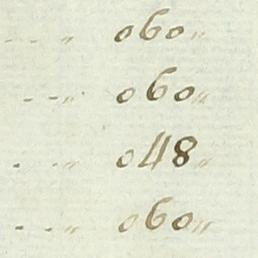 - - - " 060 "
- - " 060 "
- - " 048 "
- - " 060 "